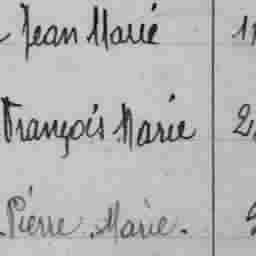 Jean Marie
François Marie 2
Pierre Marie.